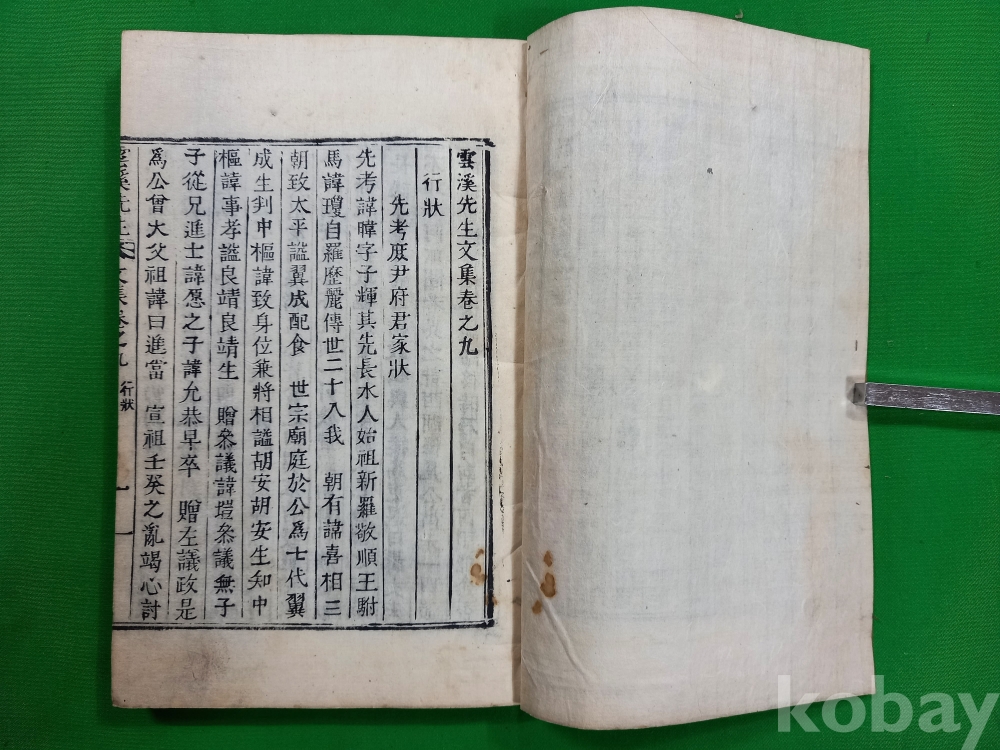 雲溪先生文集卷之九
行狀
先考庶尹府君家狀
先考諱暐字子輝其先長水人始祖新羅敬順王駙
馬諱瓊自羅歷麗傳世二十八我 朝有諱喜相三
朝致太平謚翼成配食 世宗廟庭於公爲七代翼
成生判中樞諱致身位兼將相謚胡安胡安生知中
樞諱事孝謚良靖良靖生 贈叅議諱塏叅議無子
子從兄進士諱愿之子諱允恭早卒 贈左議政是
爲公曾大父祖諱曰進當 宣祖壬癸之亂竭心討
雲溪先生文集卷之九 行狀 一
kobay